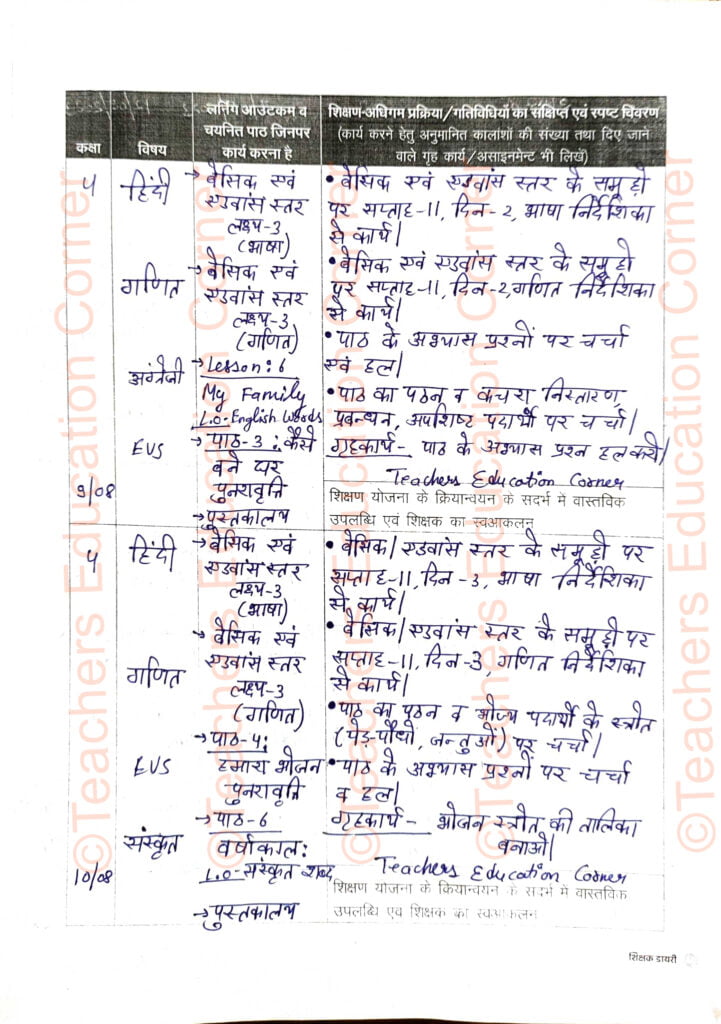 कक्षा
विषय
लर्निंग आउटकम व
चयनित पाठ जिनपर
कार्य करना है
शिक्षण-अधिगम प्रक्रिया/गतिविधियों का संक्षिप्त एवं स्पष्ट विवरण
(कार्य करने हेतु अनुमानित कालांशों की संख्या तथा दिए जाने
वाले गृह कार्य/असाइनमेन्ट भी लिखें)
५
हिंदी
→ बेसिक एवं
एडवांस स्तर
लक्ष्य-3
(भाषा)
• बेसिक एवं एडवांस स्तर के समूहों
पर सप्ताह-11, दिन-2, भाषा निर्देशिका
से कार्य।
गणित
→ बेसिक एवं
एडवांस स्तर
लक्ष्य-3
(गणित)
• बेसिक एवं एडवांस स्तर के समूहों
पर सप्ताह-11, दिन-2, गणित निर्देशिका
से कार्य।
अंग्रेजी
→ Lesson: 6
My Family
L.O.-English Words
• पाठ के अभ्यास प्रश्नों पर चर्चा
एवं हल।
EVS
→ पाठ-3 : कैसे
बने घर
पुनरावृत्ति
→ पुस्तकालय
• पाठ का पठन व कचरा निस्तारण,
प्रबन्धन, अपशिष्ट पदार्थों पर चर्चा।
गृहकार्य- पाठ के अभ्यास प्रश्न हल करो।
Teachers Education Corner
9/08
शिक्षण योजना के क्रियान्वयन के सदर्भ में वास्तविक
उपलब्धि एवं शिक्षक का स्वआकलन
५
हिंदी
→ बेसिक एवं
एडवांस स्तर
लक्ष्य-3
(भाषा)
• बेसिक/एडवांस स्तर के समूहों पर
सप्ताह-11, दिन-3, भाषा निर्देशिका
से कार्य।
गणित
→ बेसिक एवं
एडवांस स्तर
लक्ष्य-3
(गणित)
• बेसिक/एडवांस स्तर के समूहों पर
सप्ताह-11, दिन-3, गणित निर्देशिका
से कार्य।
EVS
→ पाठ-4:
हमारा भोजन
पुनरावृत्ति
• पाठ का पठन व भोज्य पदार्थों के स्त्रोत
(पेड़-पौधों, जन्तुओं) पर चर्चा।
संस्कृत
→ पाठ-6
वर्षाकाल:
L.O-संस्कृत शब्द
→ पुस्तकालय
• पाठ के अभ्यास प्रश्नों पर चर्चा
व हल।
गृहकार्य- भोजन स्त्रोत की तालिका
बनाओ।
Teachers Education Corner
10/08
शिक्षण योजना के क्रियान्वयन के सदर्भ में वास्तविक
उपलब्धि एव शिक्षक का स्वआकलन
शिक्षक डायरी
©Teachers Education Corner
©Teachers Education Corner
©Teachers Education Corner
©Teachers Education Corner
©Teachers Education Corner